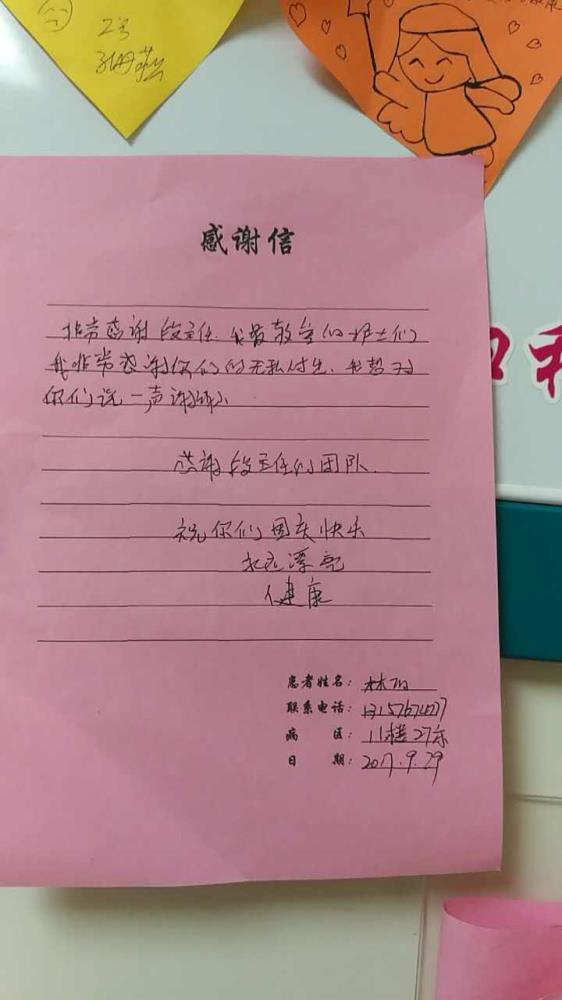 2号
感谢信
非常感谢段主任、我最敬爱的护士们
我非常感谢你们的无私付出、我想对
你们说一声谢谢
感谢段主任的团队
祝你们国庆快乐
永远漂亮
健康
患者姓名：林
联系电话：
病 区：11楼27床
日 期：2017.9.29
和